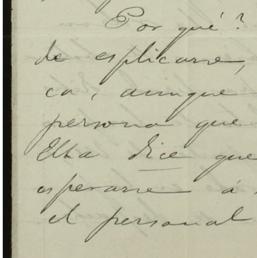 Por qué?
de esplicarse,
ca, aunque
persona que
Elba dice que
esperarse á
el personal